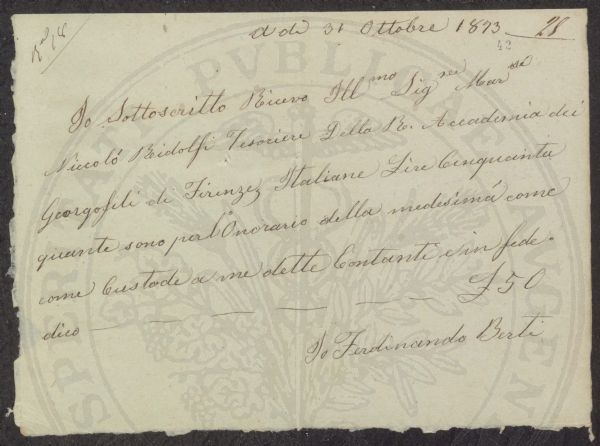 A di 31 Ottobre 1873 28
42
Io Sottoscritto Ricevo Ill.mo Sig.re Mar.se
Niccoló Ridolfi Tesoriere Della R. Accademia dei
Georgofili di Firenze Italiane Lire Cinquanta
quante sono per l'Onorario della medesima come
come Custode a me dette Contanti e in fede.
dico — — — — — — £ 50
Io Ferdinando Berti
PVBLICAE